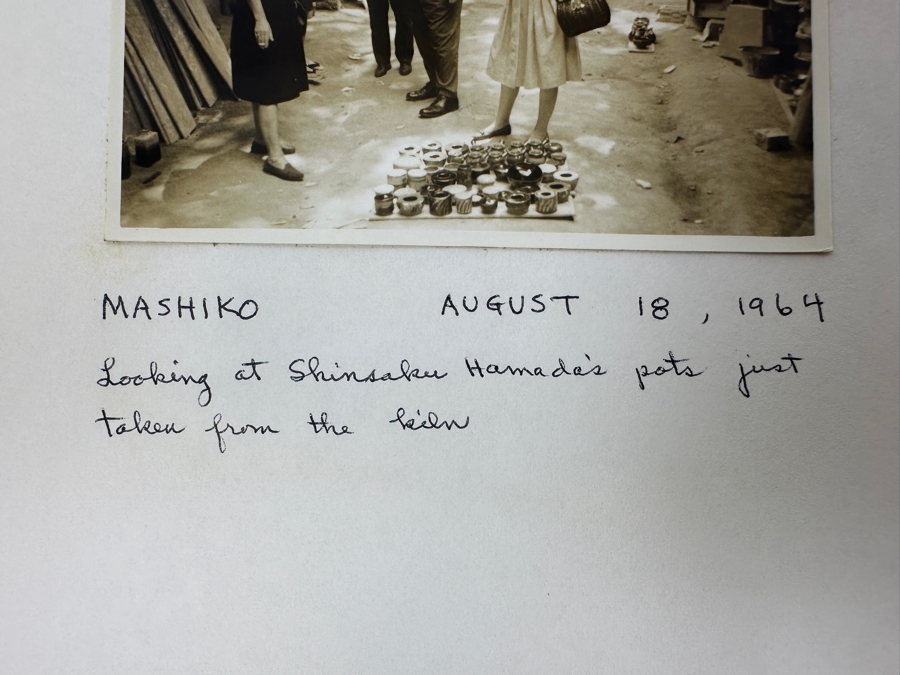 MASHIKO AUGUST 18, 1964
Looking at Shinsaku Hamada's pots just
taken from the kiln